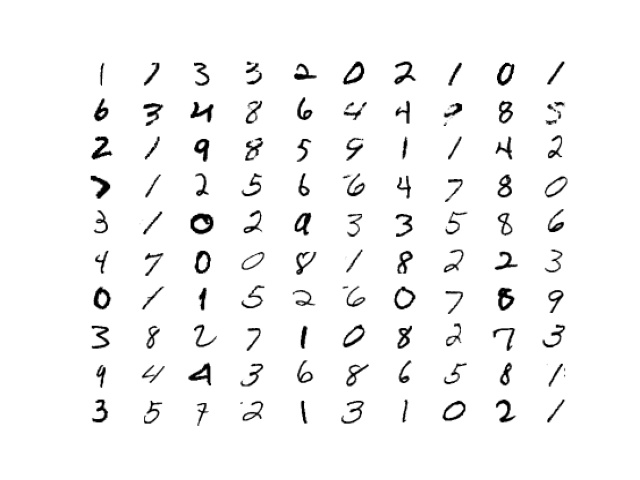 1 7 3 3 2 0 2 1 0 1
6 3 4 8 6 4 4 8 5
2 1 9 8 5 9 1 1 4 2
7 1 2 5 6 6 4 7 8 0
3 1 0 2 9 3 3 5 8 6
4 7 0 0 8 1 8 2 2 3
0 1 1 5 2 6 0 7 8 9
3 8 2 7 1 0 8 2 7 3
9 4 4 3 6 8 6 5 8 1
3 5 7 2 1 3 1 0 2 1